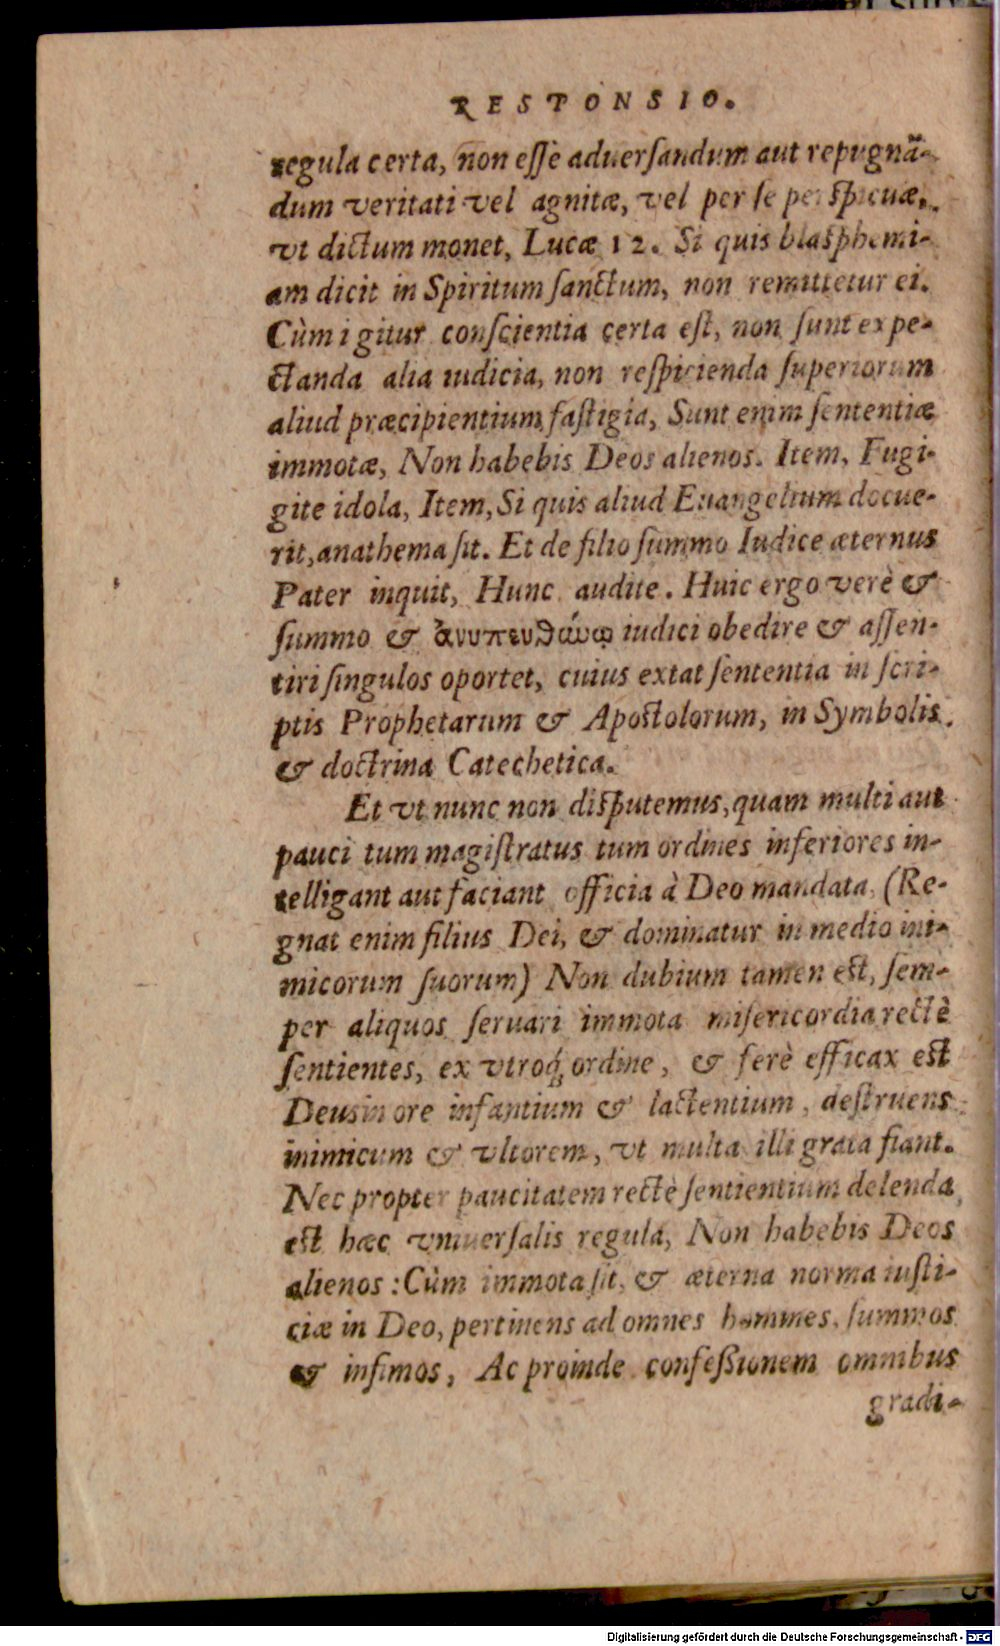 RESPONSIO.
regula certa, non eſſe aduerſandum aut repugnā-
dum veritati vel agnitæ, vel per ſe perſpicuæ,
vt dictum monet, Lucæ 12. Si quis blaſphemi-
am dicit in Spiritum ſanctum, non remittetur ei.
Cùm igitur conſcientia certa eſt, non ſunt expe-
ctanda alia iudicia, non reſpicienda ſuperiorum
aliud præcipientium faſtigia, Sunt enim ſententiæ
immotæ, Non habebis Deos alienos. Item, Fugi-
gite idola, Item, Si quis aliud Euangelium docue-
rit, anathema ſit. Et de filio ſummo Iudice æternus
Pater inquit, Hunc audite. Huic ergo verè &
ſummo & ἀνυπευθώνῳ iudici obedire & aſſen-
tiri ſingulos oportet, cuius extat ſententia in ſcri-
ptis Prophetarum & Apoſtolorum, in Symbolis
& doctrina Catechetica.
Et vt nunc non diſputemus, quam multi aut
pauci tum magiſtratus tum ordines inferiores in-
telligant aut faciant officia à Deo mandata, (Re-
gnat enim filius Dei, & dominatur in medio ini-
micorum ſuorum) Non dubium tamen eſt, ſem-
per aliquos ſeruari immota miſericordia rectè
ſentientes, ex vtroq; ordine, & ferè efficax eſt
Deus in ore infantium & lactentium, deſtruens
inimicum & vltorem, vt multa illi grata fiant.
Nec propter paucitatem rectè ſentientium delenda
eſt hæc vniuerſalis regula, Non habebis Deos
alienos: Cùm immota ſit, & æterna norma iuſti-
ciæ in Deo, pertinens ad omnes homines, ſummos
& infimos, Ac proinde confeßionem omnibus
gradi-
Digitalisierung gefördert durch die Deutsche Forschungsgemeinschaft - DFG